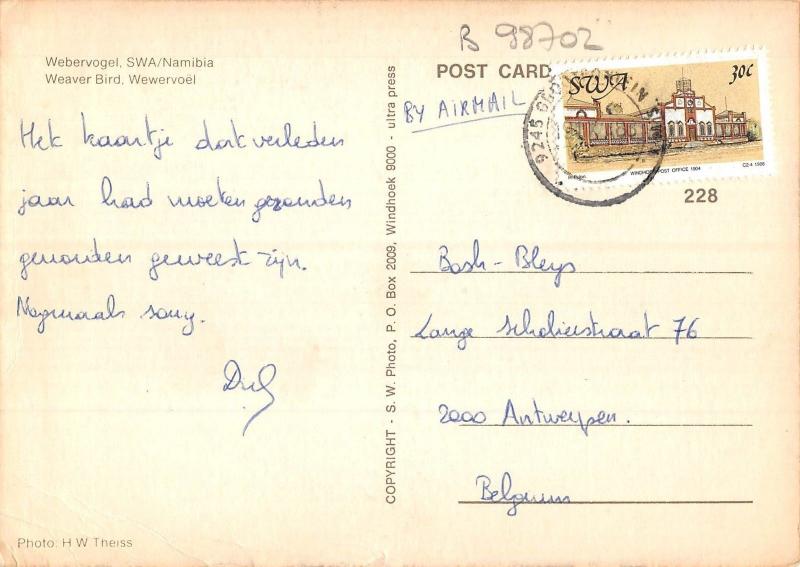 B 98702
Webervogel, SWA/Namibia
Weaver Bird, Wewervoël
POST CARD
BY AIRMAIL
SWA
30c
WINDHOEK POST OFFICE 1904
228
Het kaartje dat verleden
jaar had moeten gezonden
geworden geweest zijn.
Nogmaals sorry.
COPYRIGHT - S. W. Photo, P. O. Box 2009, Windhoek 9000 - ultra press
Bosh - Bleys
Lange Scholierstraat 76
2000 Antwerpen.
Belgium
Photo: H W Theiss